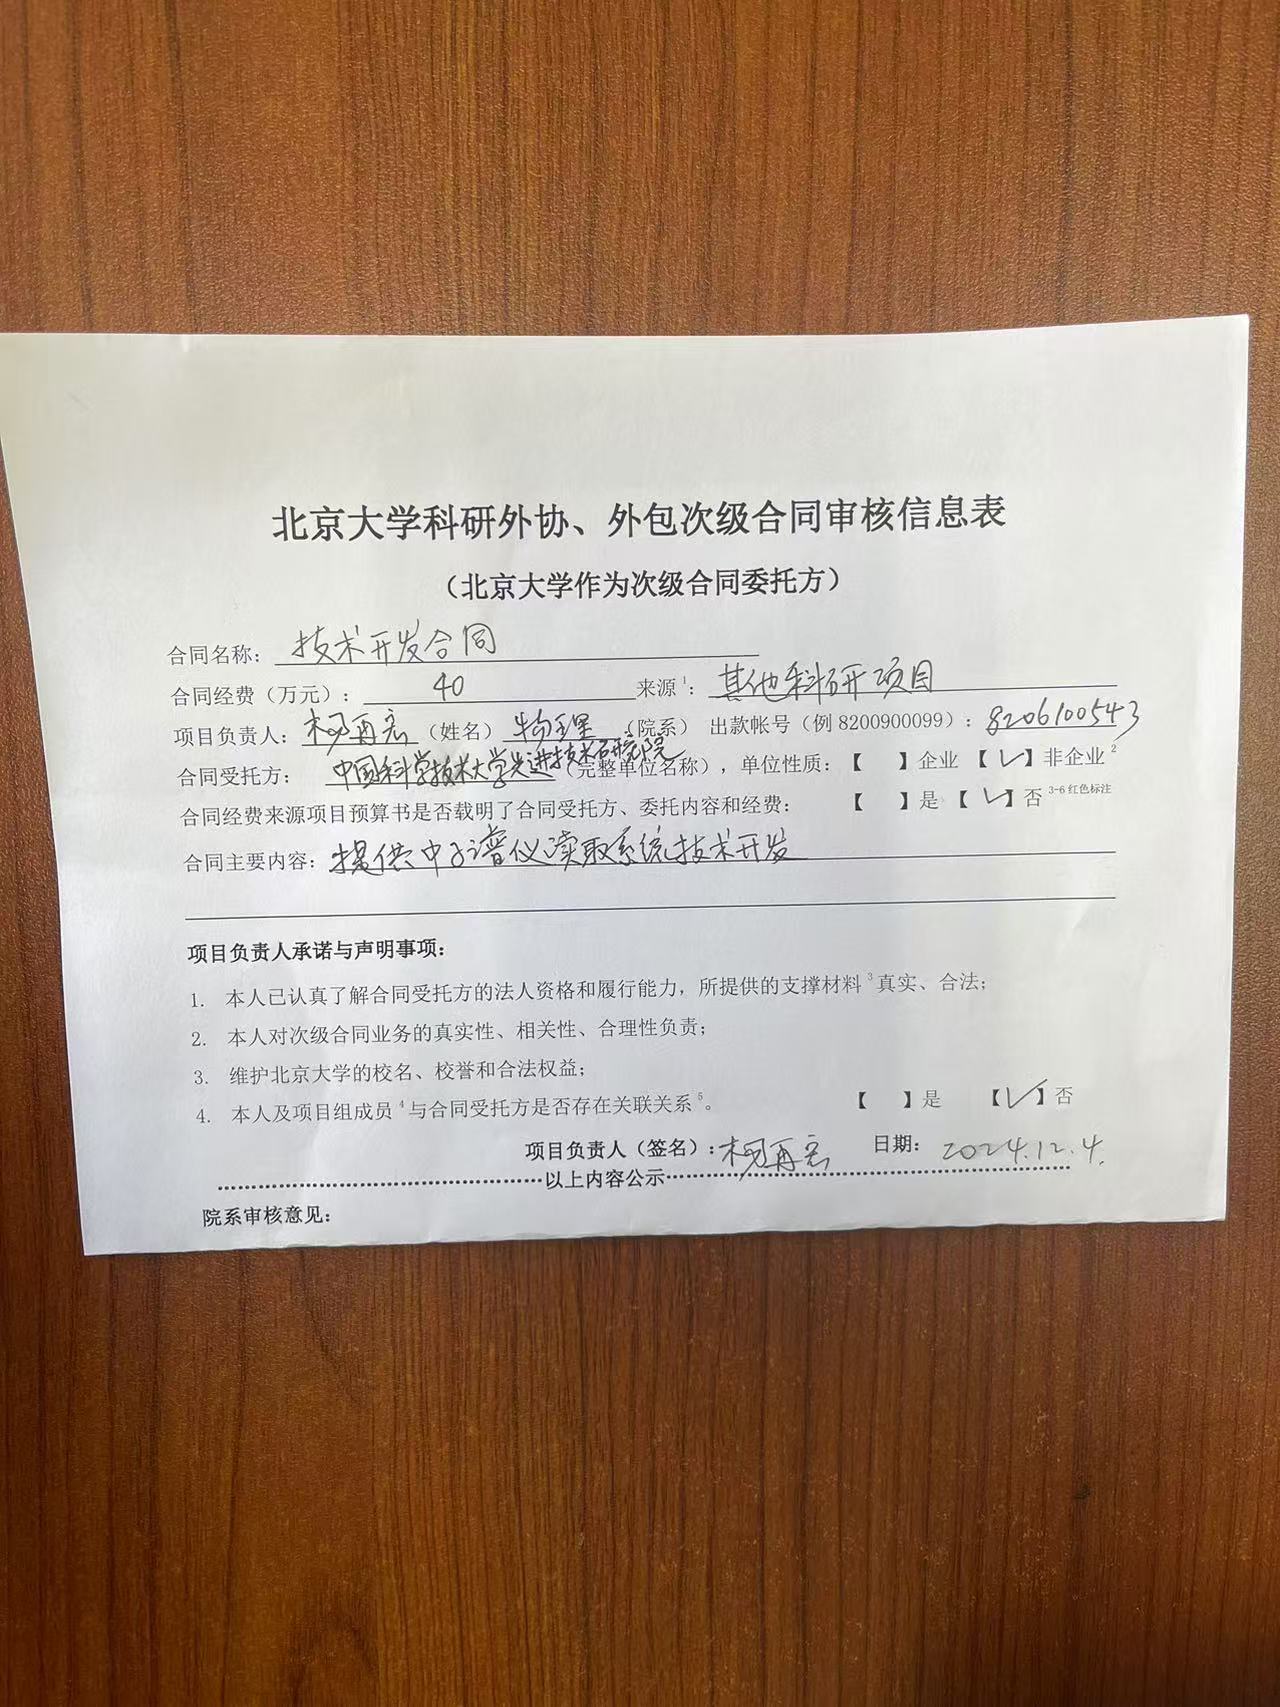 北京大学科研外协、外包次级合同审核信息表
（北京大学作为次级合同委托方）
合同名称：技术开发合同
合同经费（万元）：40 来源1：其他科研项目
项目负责人：杨再宏（姓名）物理（院系） 出款帐号（例8200900099）：8206100543
合同受托方：中国科学技术大学先进技术研究院（完整单位名称），单位性质：【 】企业【✓】非企业2
合同经费来源项目预算书是否载明了合同受托方、委托内容和经费：【 】是【✓】否3-6红色标注
合同主要内容：提供中子谱仪读取系统技术开发
项目负责人承诺与声明事项：
1. 本人已认真了解合同受托方的法人资格和履行能力，所提供的支撑材料3真实、合法；
2. 本人对次级合同业务的真实性、相关性、合理性负责；
3. 维护北京大学的校名、校誉和合法权益；
4. 本人及项目组成员4与合同受托方是否存在关联关系5。 【 】是 【✓】否
项目负责人（签名）：杨再宏 日期：2024.12.4.
以上内容公示
院系审核意见：